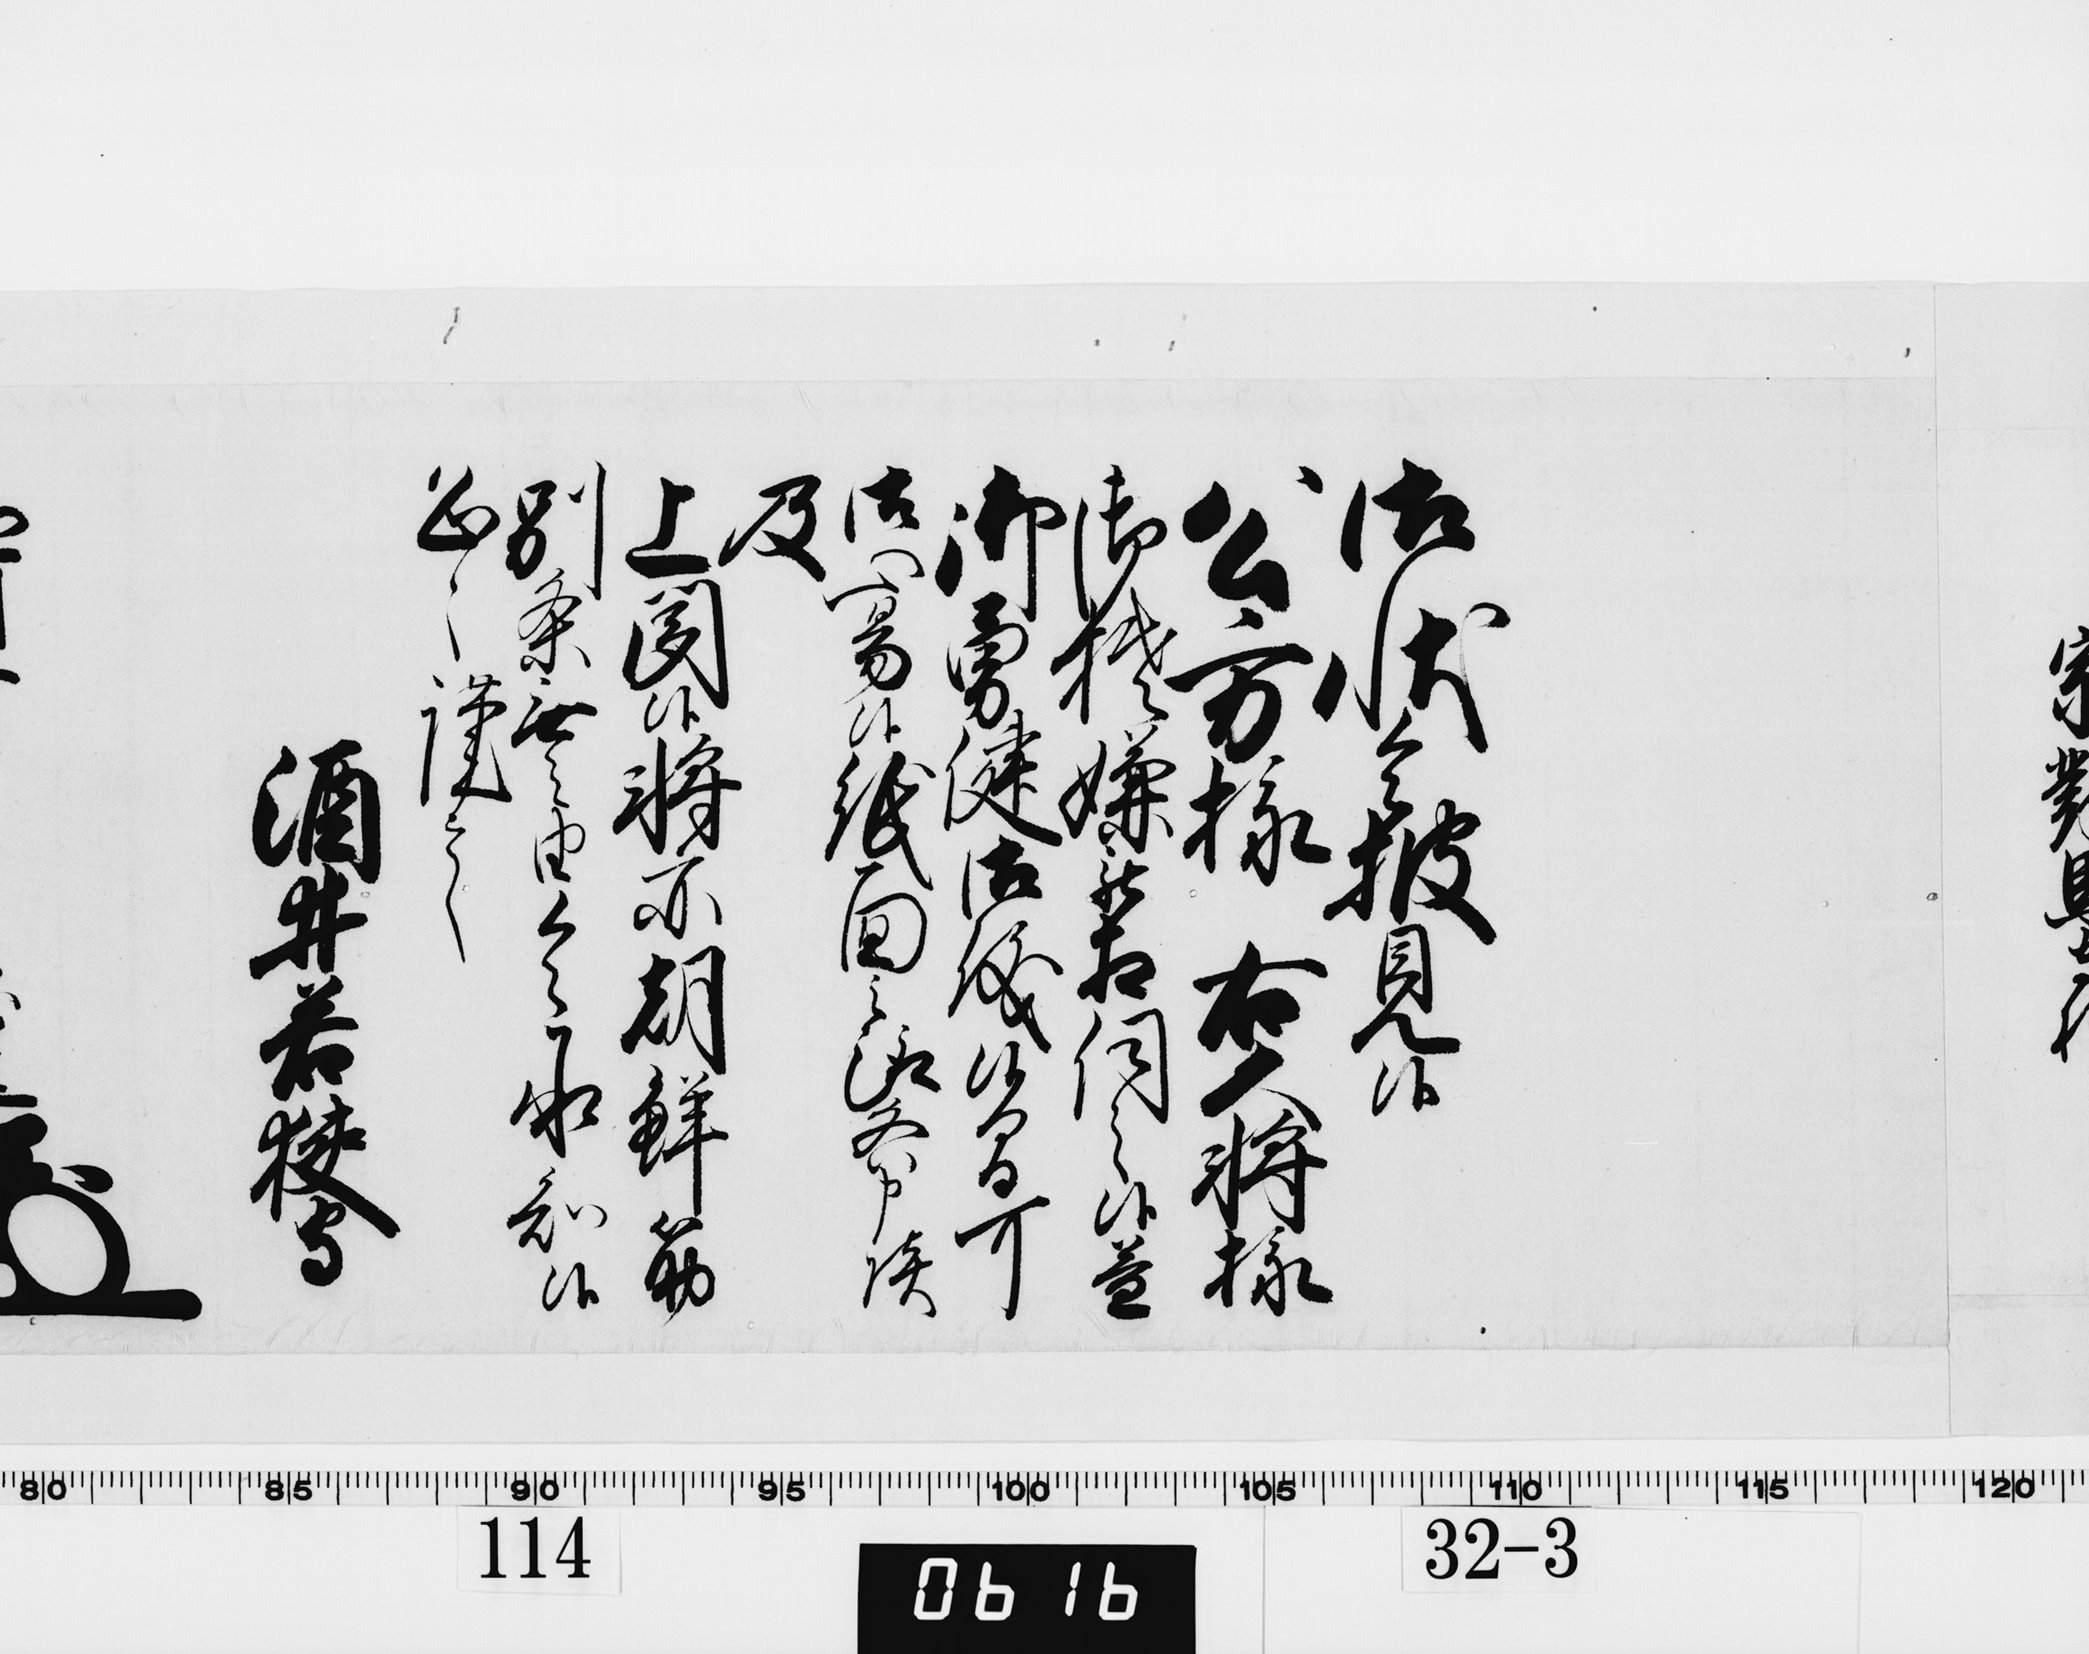 御状令披見候
公方様 右大将様
御機嫌被相伺之候益
御勇健御儀候間可
御心易候紙面之趣各申談
及
上聞候将亦朝鮮筋
別条無之由令承知候
恐々謹言
酒井若狭守
宗對馬守
80 85 90 95 100 105 110 115 120
114
0616
32-3